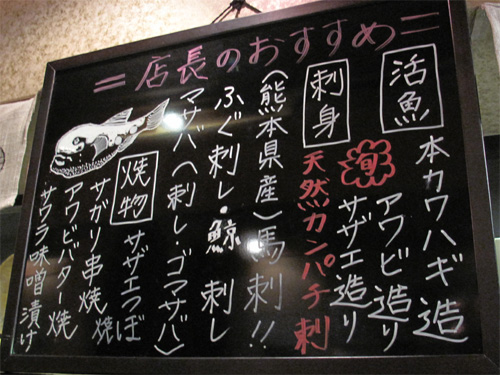 ＝店長のおすすめ＝
活魚
本カワハギ造
アワビ造り
旬
サザエ造り
刺身
天然カンパチ刺
(熊本県産)馬刺!!
ふぐ刺し・鯨刺し
マサバ(刺し・ゴマサバ)
焼物
サザエつぼ焼
サガリ串焼
アワビバター焼
サワラ味噌漬け